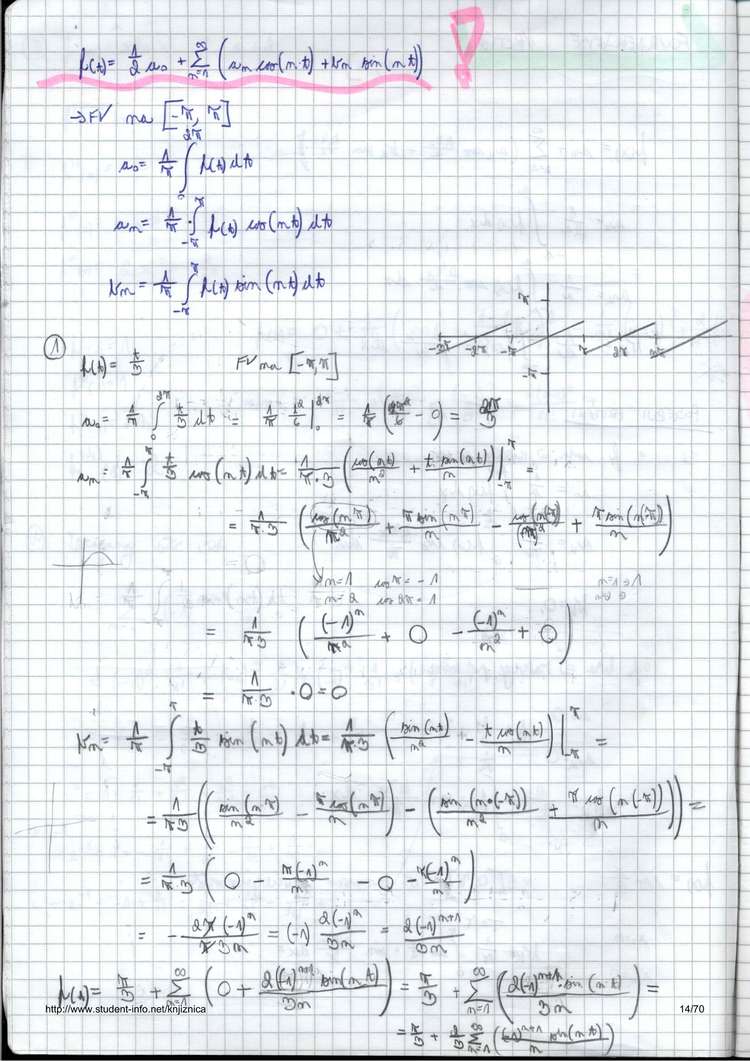 f(t) = 1/2 a₀ + ∑_{n=1}^{∞} (aₙ cos(n·t) + bₙ sin(nt)) !
→ FV na [-π, π]
a₀ = 1/π ∫_{0}^{2π} f(t) dt
aₙ = 1/π · ∫_{-π}^{π} f(t) cos(nt) dt
bₙ = 1/π ∫_{-π}^{π} f(t) sin(nt) dt
π
-3π -2π -π 2π 3π
-π
① f(t) = t/3 FV na [-π, π]
a₀ = 1/π ∫_{0}^{2π} t/3 dt = 1/π · t²/6 |_{0}^{2π} = 1/π ( /6 - 0) = 2π/3
aₙ = 1/π ∫_{-π}^{π} t/3 cos(nt) dt = 1/(π·3) (cos(nt)/n² + t·sin(nt)/n) |_{-π}^{π} =
= 1/(π·3) (cos(nπ)/n² + π sin(nπ)/n - cos(n(-π))/n² + π sin(n(-π))/n)
n=1 cos π = -1
n=2 cos 2π = 1
= 1/(π3) ((-1)ⁿ/n² + 0 - (-1)ⁿ/n² + 0)
= 1/(π·3) · 0 = 0
bₙ = 1/π ∫_{-π}^{π} t/3 sin(nt) dt = 1/(π·3) (sin(nt)/n² - t cos(nt)/n) |_{-π}^{π} =
= 1/(π3) ((sin(nπ)/n² - π cos(nπ)/n) - (sin(n·(-π))/n² + π cos(n(-π))/n)) =
= 1/(π3) (0 - π(-1)ⁿ/n - 0 - π(-1)ⁿ/n)
= - 2π(-1)ⁿ/(π3n) = (-1) 2(-1)ⁿ/3n = 2(-1)ⁿ⁺¹/3n
f(t) = π/3 + ∑_{n=1}^{∞} (0 + 2(-1)ⁿ⁺¹ sin(nt)/3n) = π/3 + ∑_{n=1}^{∞} (2(-1)ⁿ⁺¹·sin(nt)/3n) =
http://www.student-info.net/knjiznica 14/70
= π/3 + 2/3 ∑_{n=1}^{∞} ((-1)ⁿ⁺¹ sin(nt)/n)